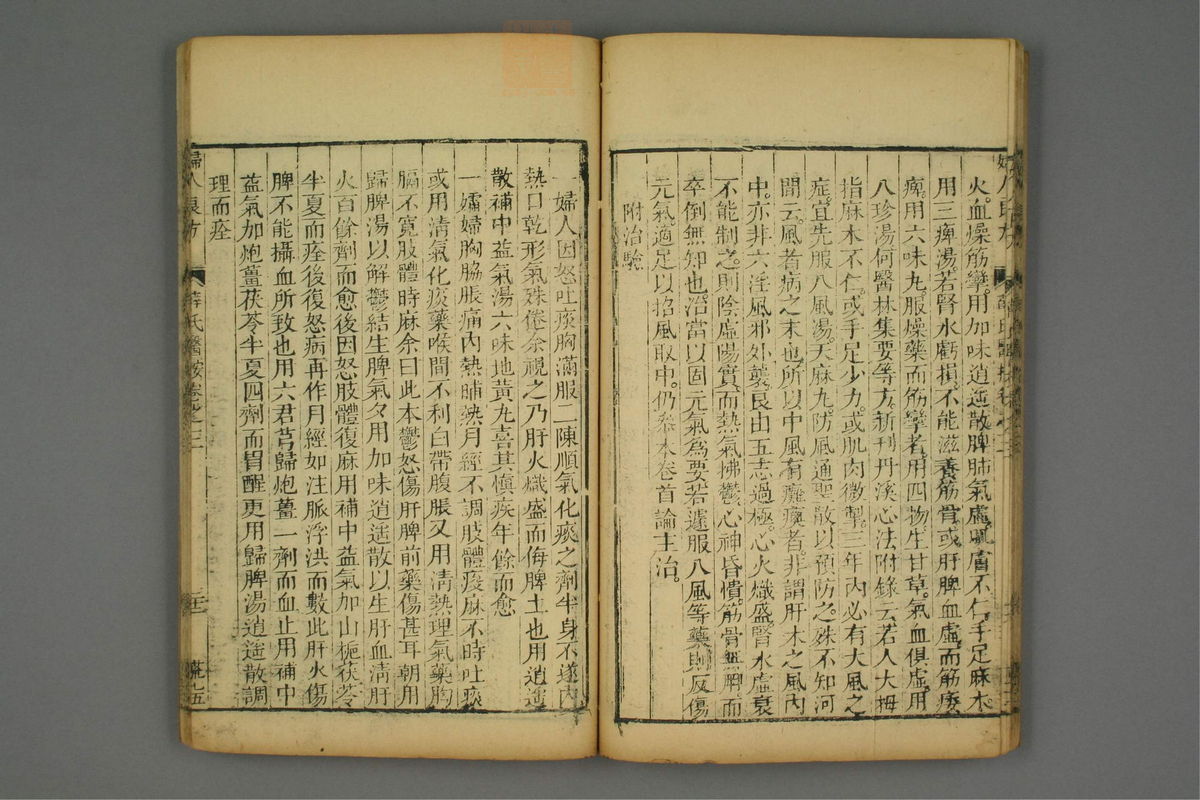 火。血燥筋攣。用加味逍遙散。脾肺氣虛。肌膚不仁。手足麻木。
用三痺湯。若腎水虧損。不能滋養筋骨。或肝脾血虛。而筋痿
痺。用六味丸。服燥藥而筋攣者。用四物生甘草。氣血俱虛。用
八珍湯。何醫林集要等方。新刊丹溪心法附錄云。若人大拇
指麻木不仁。或手足少力。或肌肉微掣。三年內必有大風之
症。宜先服八風湯。天麻丸。防風通聖散。以預防之。殊不知河
間云。風者病之末也。所以中風有癱瘓者。非謂肝木之風內
中。亦非六淫風邪外襲。良由五志過極。心火熾盛。腎水虛衰
不能制之。則陰虛陽實。而熱氣怫鬱。心神昏憒。筋骨無用。而
卒倒無知也。治當以固元氣為要。若遽服八風等藥。則反傷
元氣。適足以招風取中。仍參本卷首論主治。
附治驗
一婦人因怒吐痰胸滿服二陳順氣化痰之劑半身不遂內
熱口乾形氣殊倦余視之乃肝火熾盛而侮脾土也用逍遙
散補中益氣湯六味地黃丸喜其慎疾年餘而愈
一孀婦胸脇脹痛內熱晡熱月經不調肢體痠麻不時吐痰
或用清氣化痰藥喉間不利白帶腹脹又用清熱理氣藥胸
膈不寬肢體時麻余曰此本鬱怒傷肝脾前藥傷甚耳朝用
歸脾湯以解鬱結生脾氣夕用加味逍遙散以生肝血清肝
火百餘劑而愈後因怒肢體復麻用補中益氣加山梔茯苓
半夏而痊後復怒病再作月經如注脈浮洪而數此肝火傷
脾不能攝血所致也用六君芎歸炮薑一劑而血止用補中
益氣加炮薑茯苓半夏四劑而胃醒更用歸脾湯逍遙散調
理而痊
婦人良方
薛氏醫按卷之三